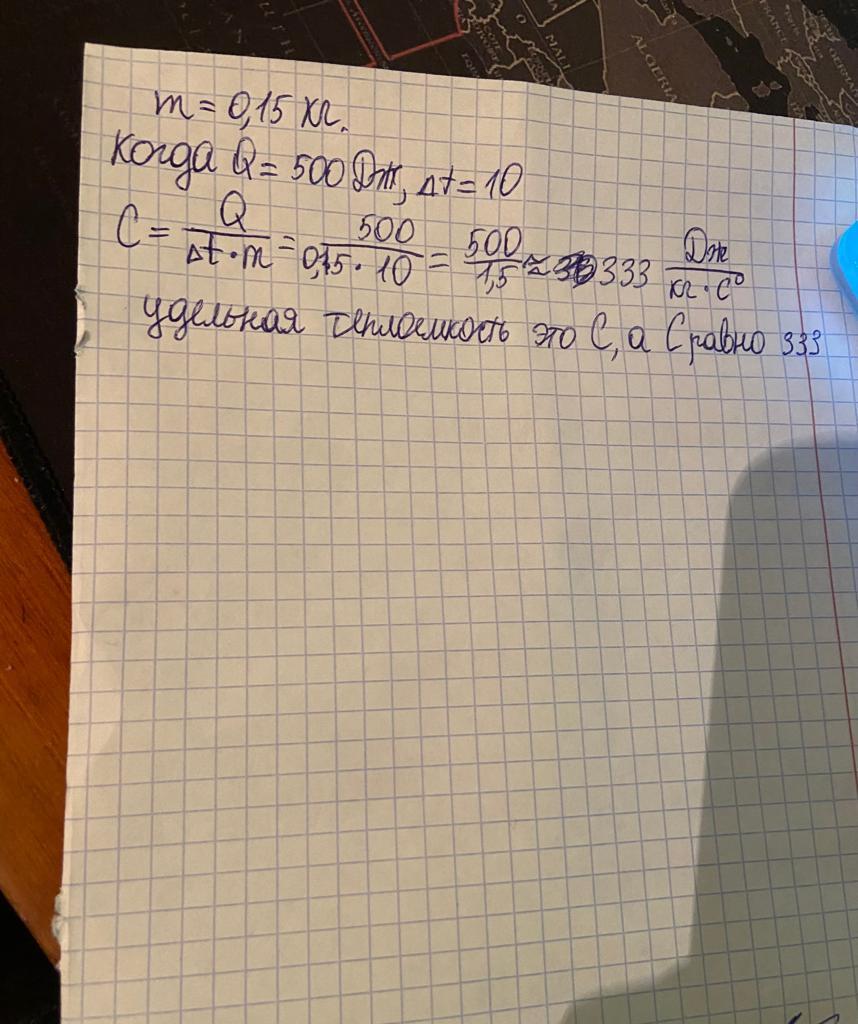 MALI
ALGERIA
m = 0,15 кг.
когда Q = 500 Дж, Δt = 10
C = Q / Δt · m = 500 / 0,15 · 10 = 500 / 1,5 ≈ 333 Дж / кг · C°
удельная теплоемкость это C, а C равно 333